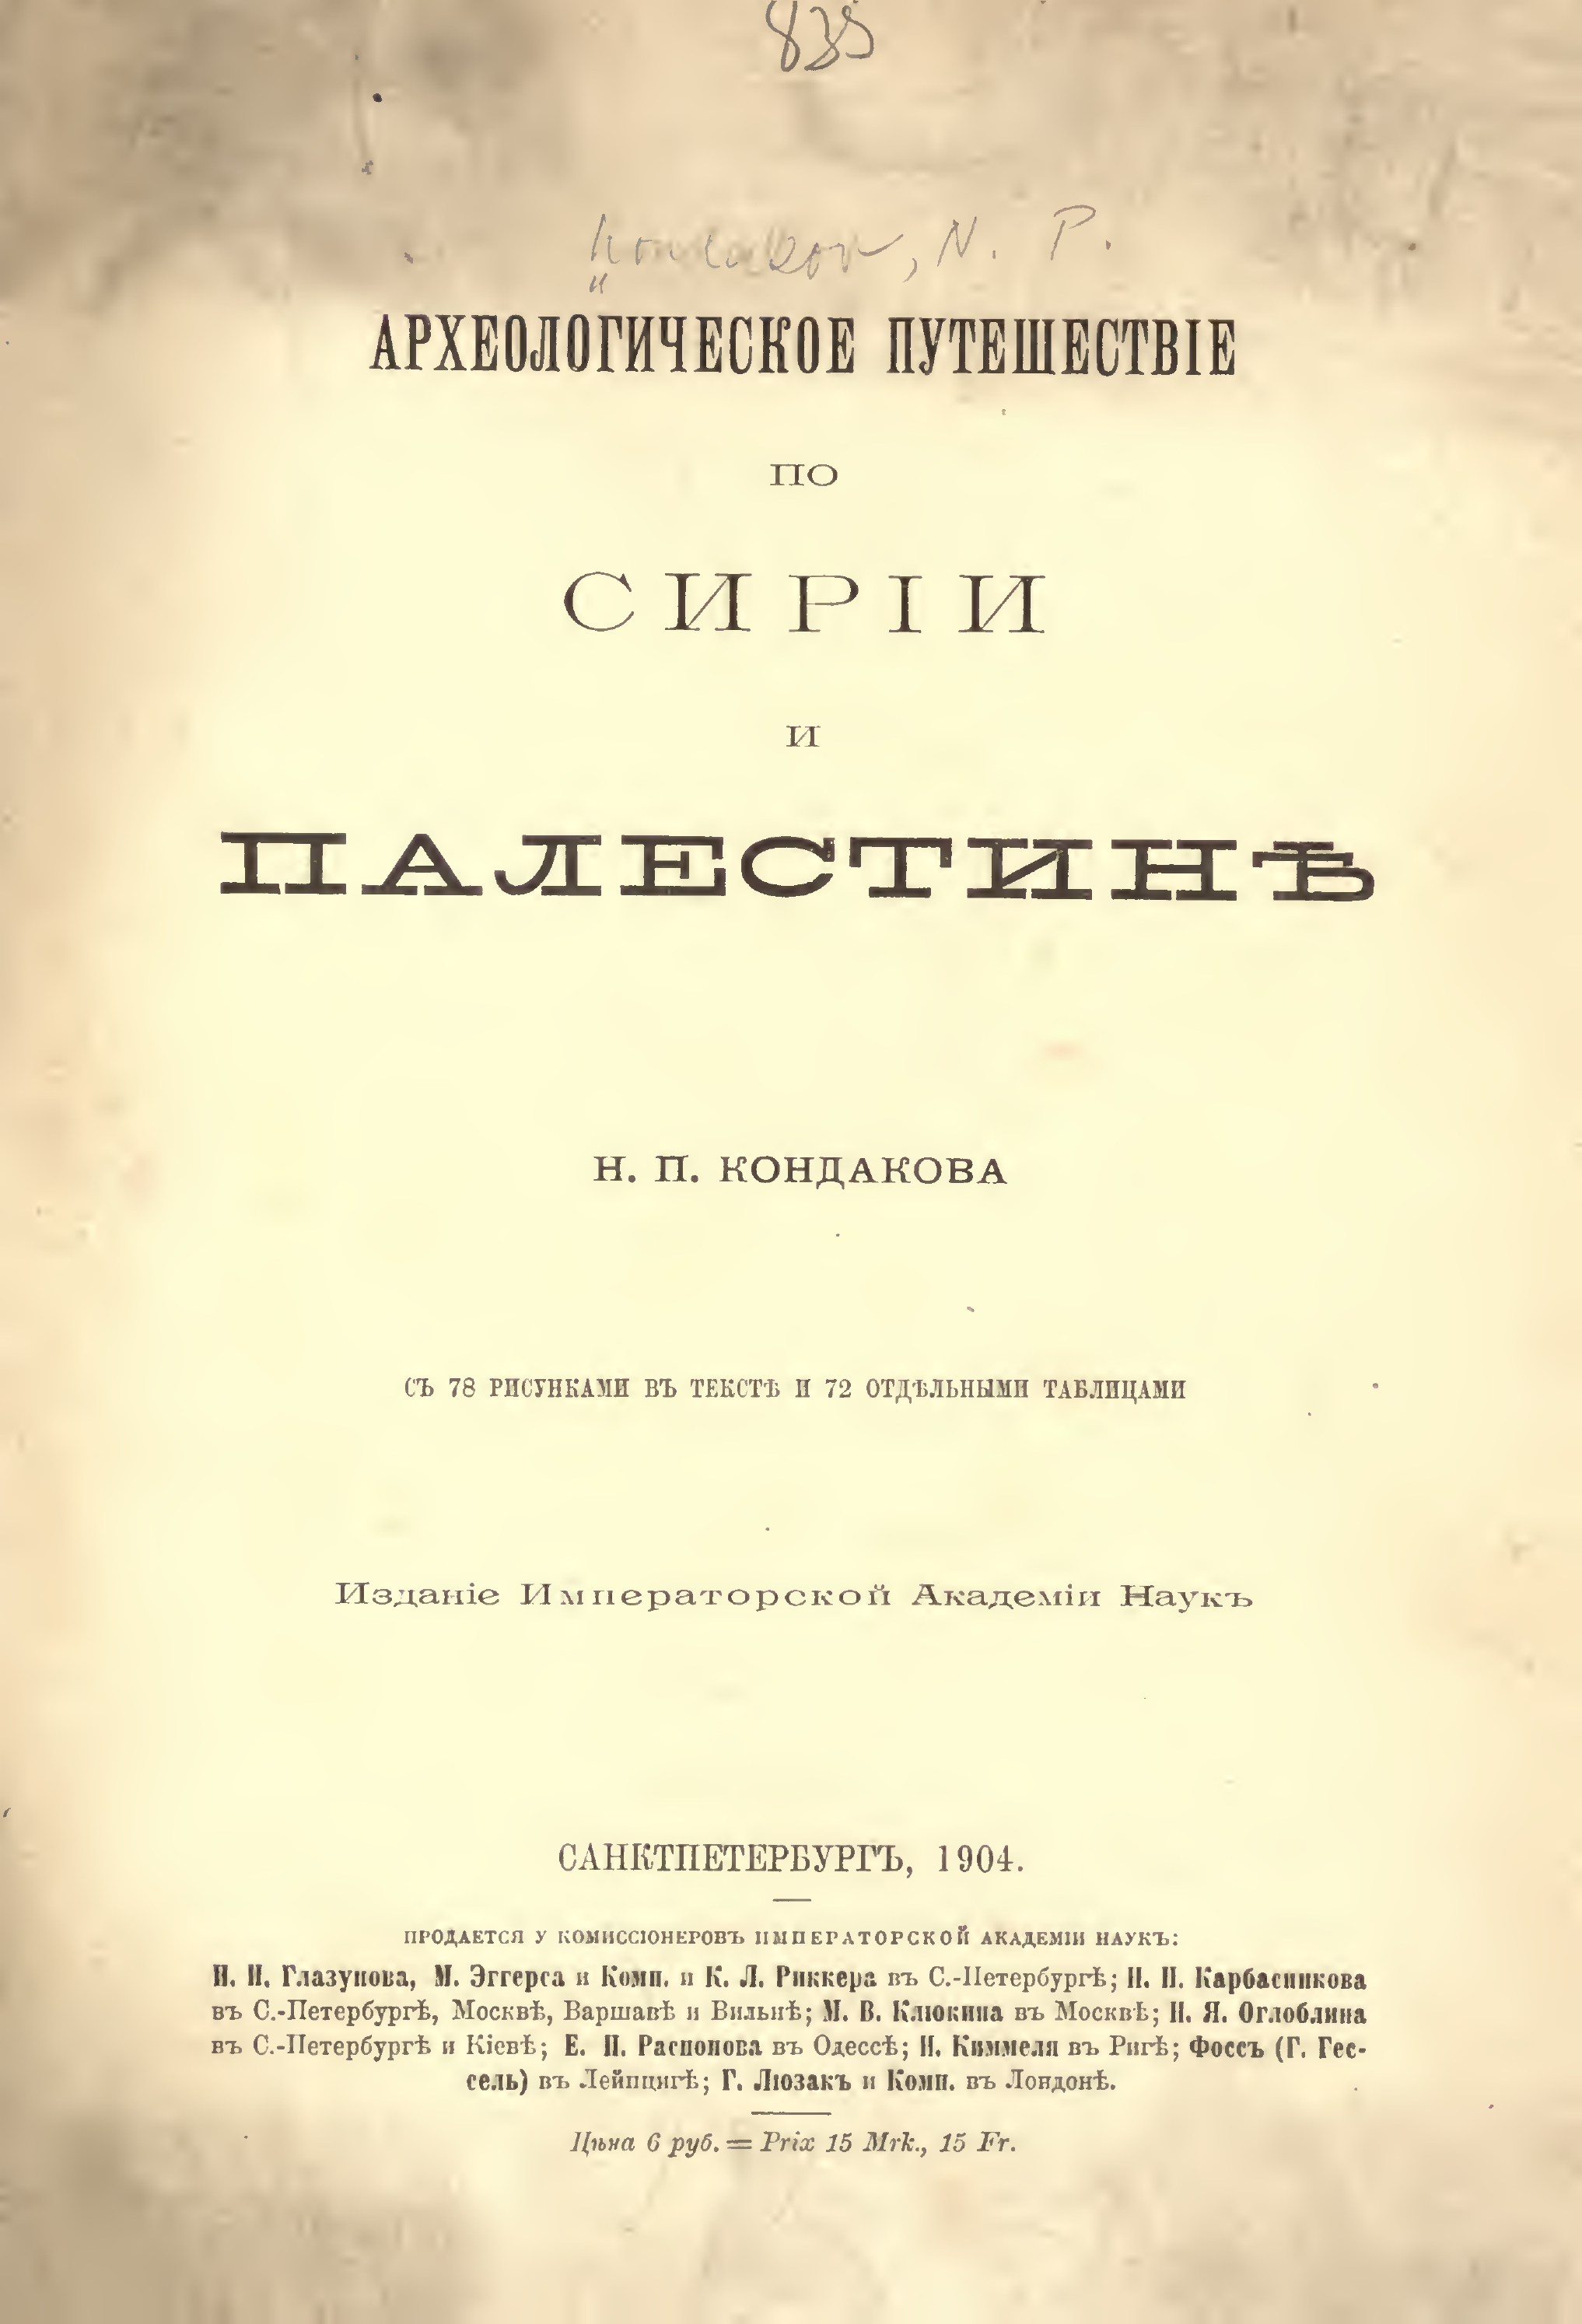 835
Kondakov, N. P.
АРХЕОЛОГИЧЕСКОЕ ПУТЕШЕСТВІЕ
ПО
СИРІИ
И
ПАЛЕСТИНѢ
Н. П. КОНДАКОВА
СЪ 78 РИСУНКАМИ ВЪ ТЕКСТѢ И 72 ОТДѢЛЬНЫМИ ТАБЛИЦАМИ
Изданіе Императорской Академіи Наукъ
САНКТПЕТЕРБУРГЪ, 1904.
ПРОДАЕТСЯ У КОМИССІОНЕРОВЪ ИМПЕРАТОРСКОЙ АКАДЕМІИ НАУКЪ:
И. И. Глазунова, М. Эггерса и Комп. и К. Л. Риккера въ С.-Петербургѣ; Н. П. Карбасникова
въ С.-Петербургѣ, Москвѣ, Варшавѣ и Вильнѣ; М. В. Клюкина въ Москвѣ; Н. Я. Оглоблина
въ С.-Петербургѣ и Кіевѣ; Е. П. Распопова въ Одессѣ; Н. Киммеля въ Ригѣ; Фоссъ (Г. Гес-
сель) въ Лейпцигѣ; Г. Люзакъ и Комп. въ Лондонѣ.
Цѣна 6 руб. = Prix 15 Mrk., 15 Fr.